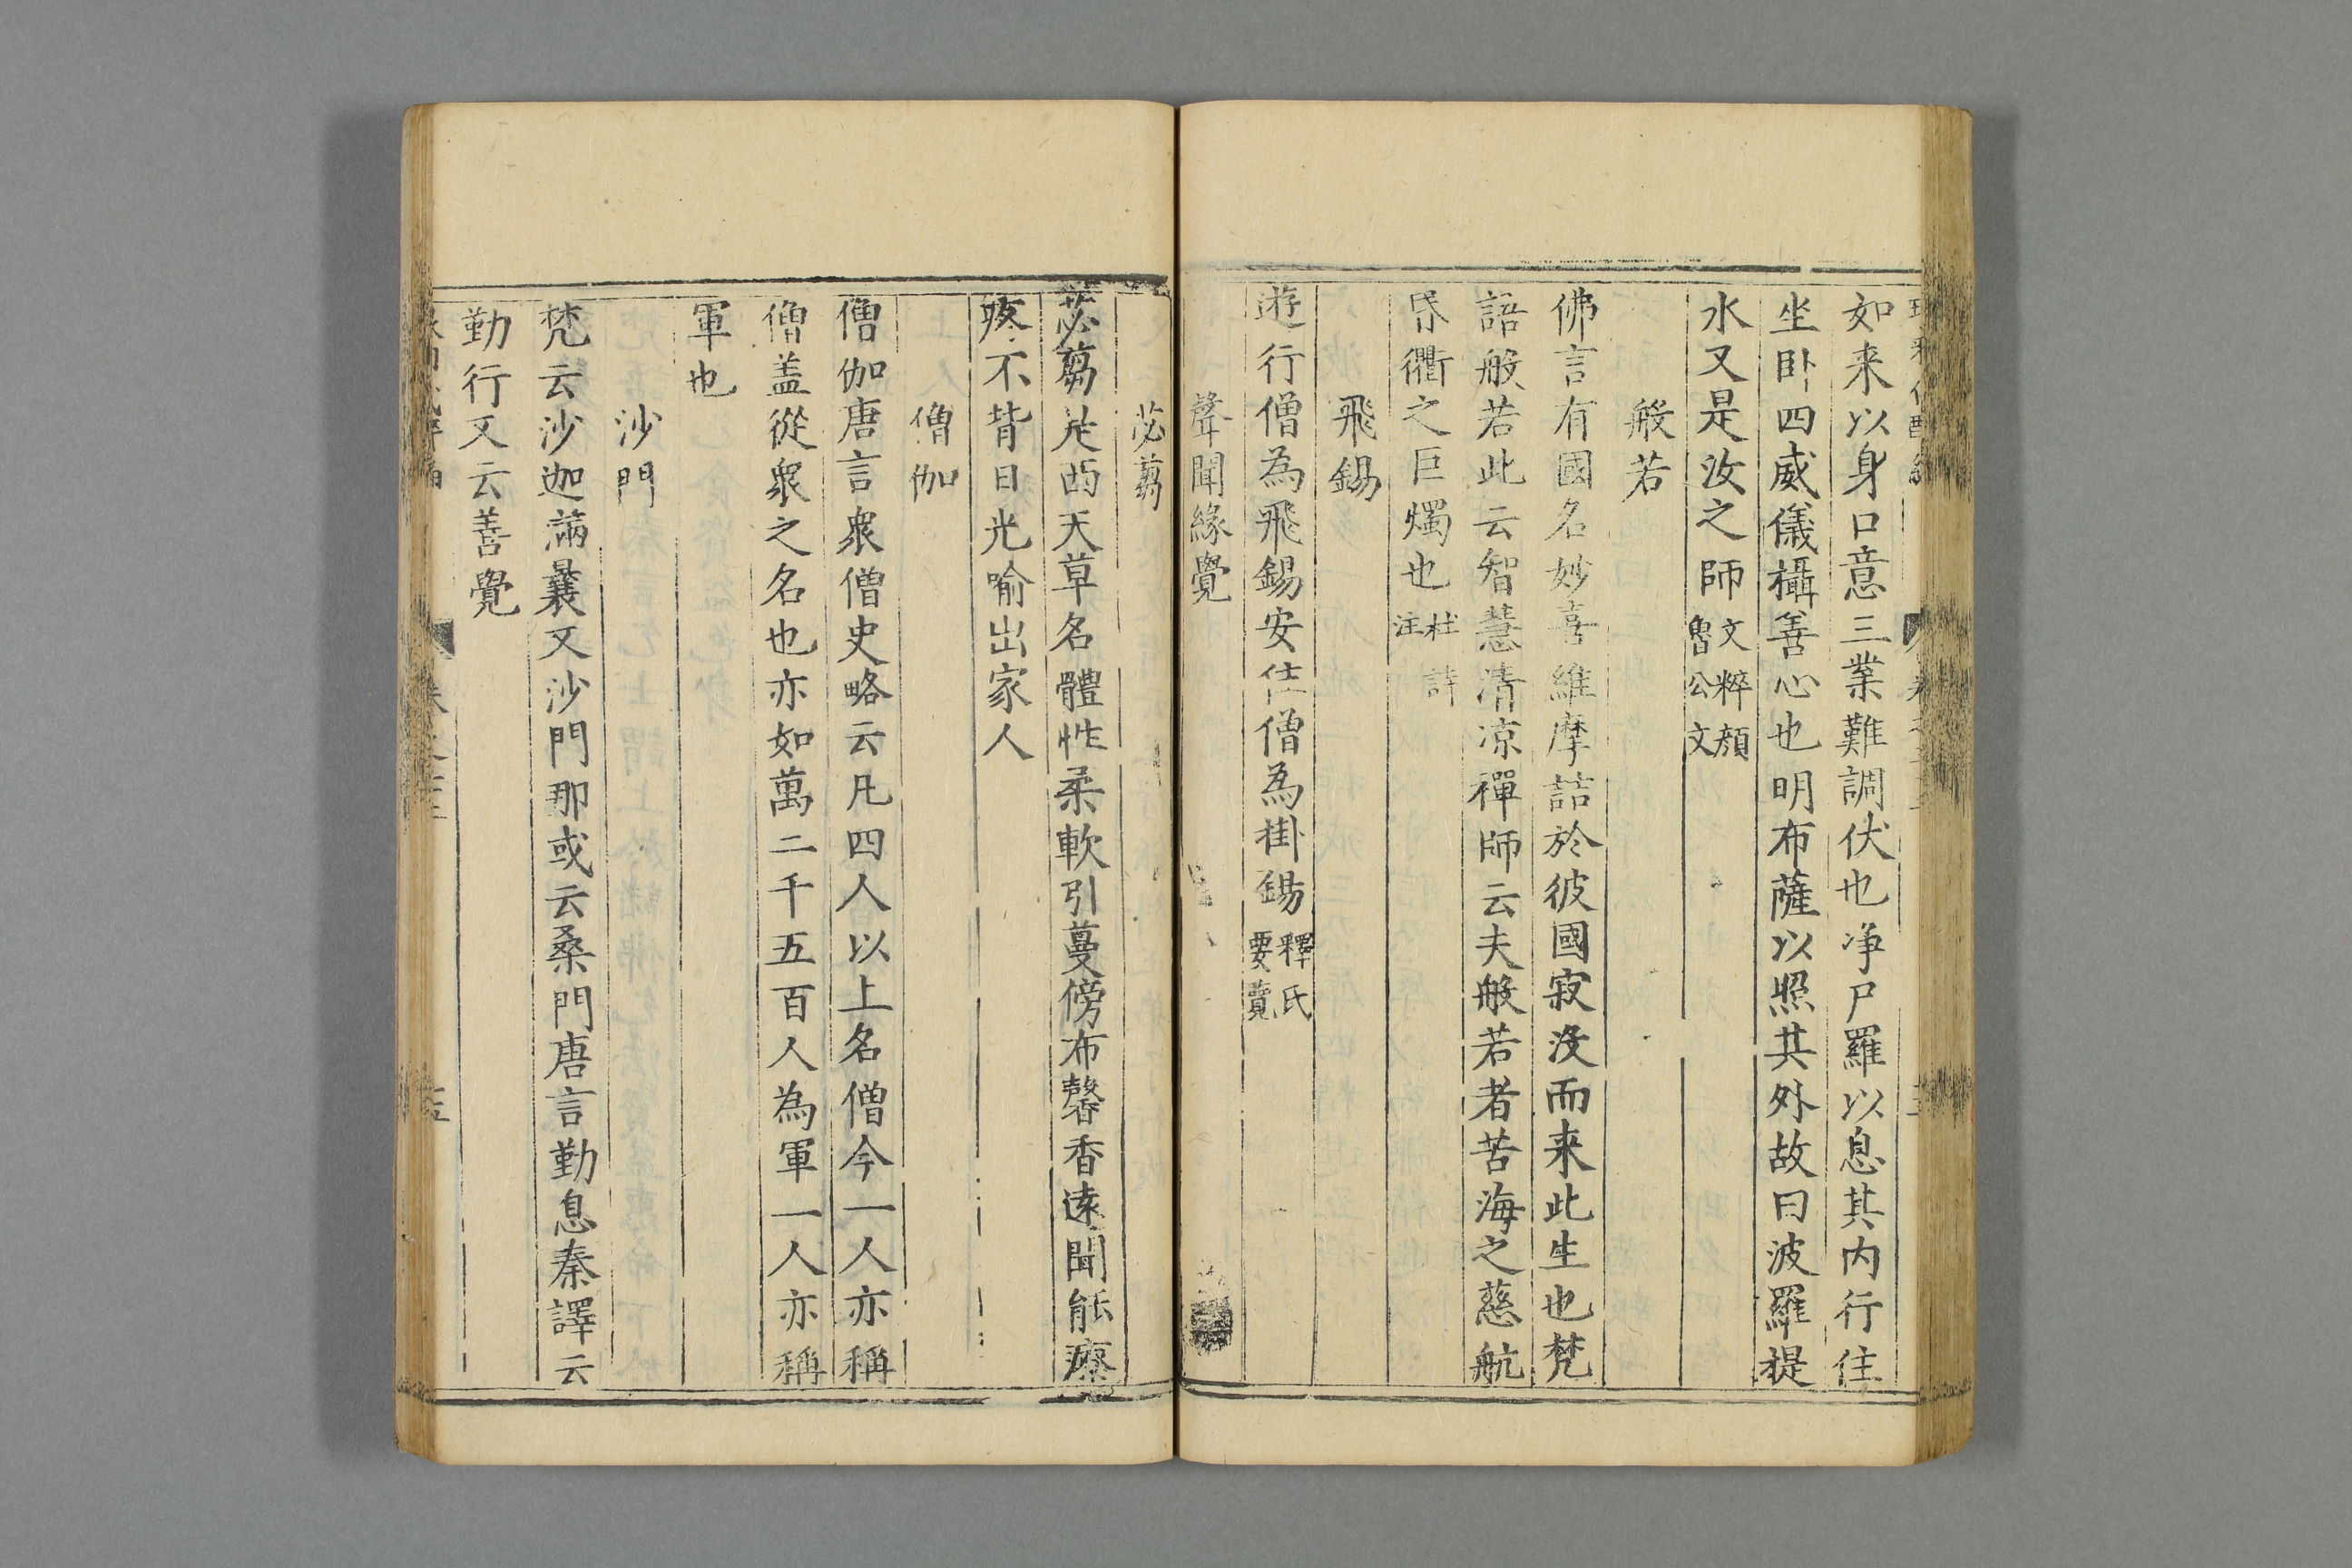 如来以身口意三業難調伏也净尸羅以息其内行住
坐卧四威儀攝善心也明布薩以照其外故曰波羅提
水又是汝之師文粹顔魯公文
般若
佛言有國名妙喜維摩詰於彼國寂沒而来此生也梵
語般若此云智慧清凉禪師云夫般若者苦海之慈航
昏衢之巨燭也杜詩注
飛錫
遊行僧為飛錫安住僧為掛錫釋氏要覽
聲聞緣覺
苾蒭
苾蒭是西天草名體性柔軟引蔓傍布馨香遠聞能療
疼不背日光喻出家人
僧伽
僧伽唐言衆僧史略云凡四人以上名僧今一人亦稱
僧盖從衆之名也亦如萬二千五百人為軍一人亦稱
軍也
沙門
梵云沙迦懣曩又沙門那或云桑門唐言勤息秦譯云
勤行又云善覺